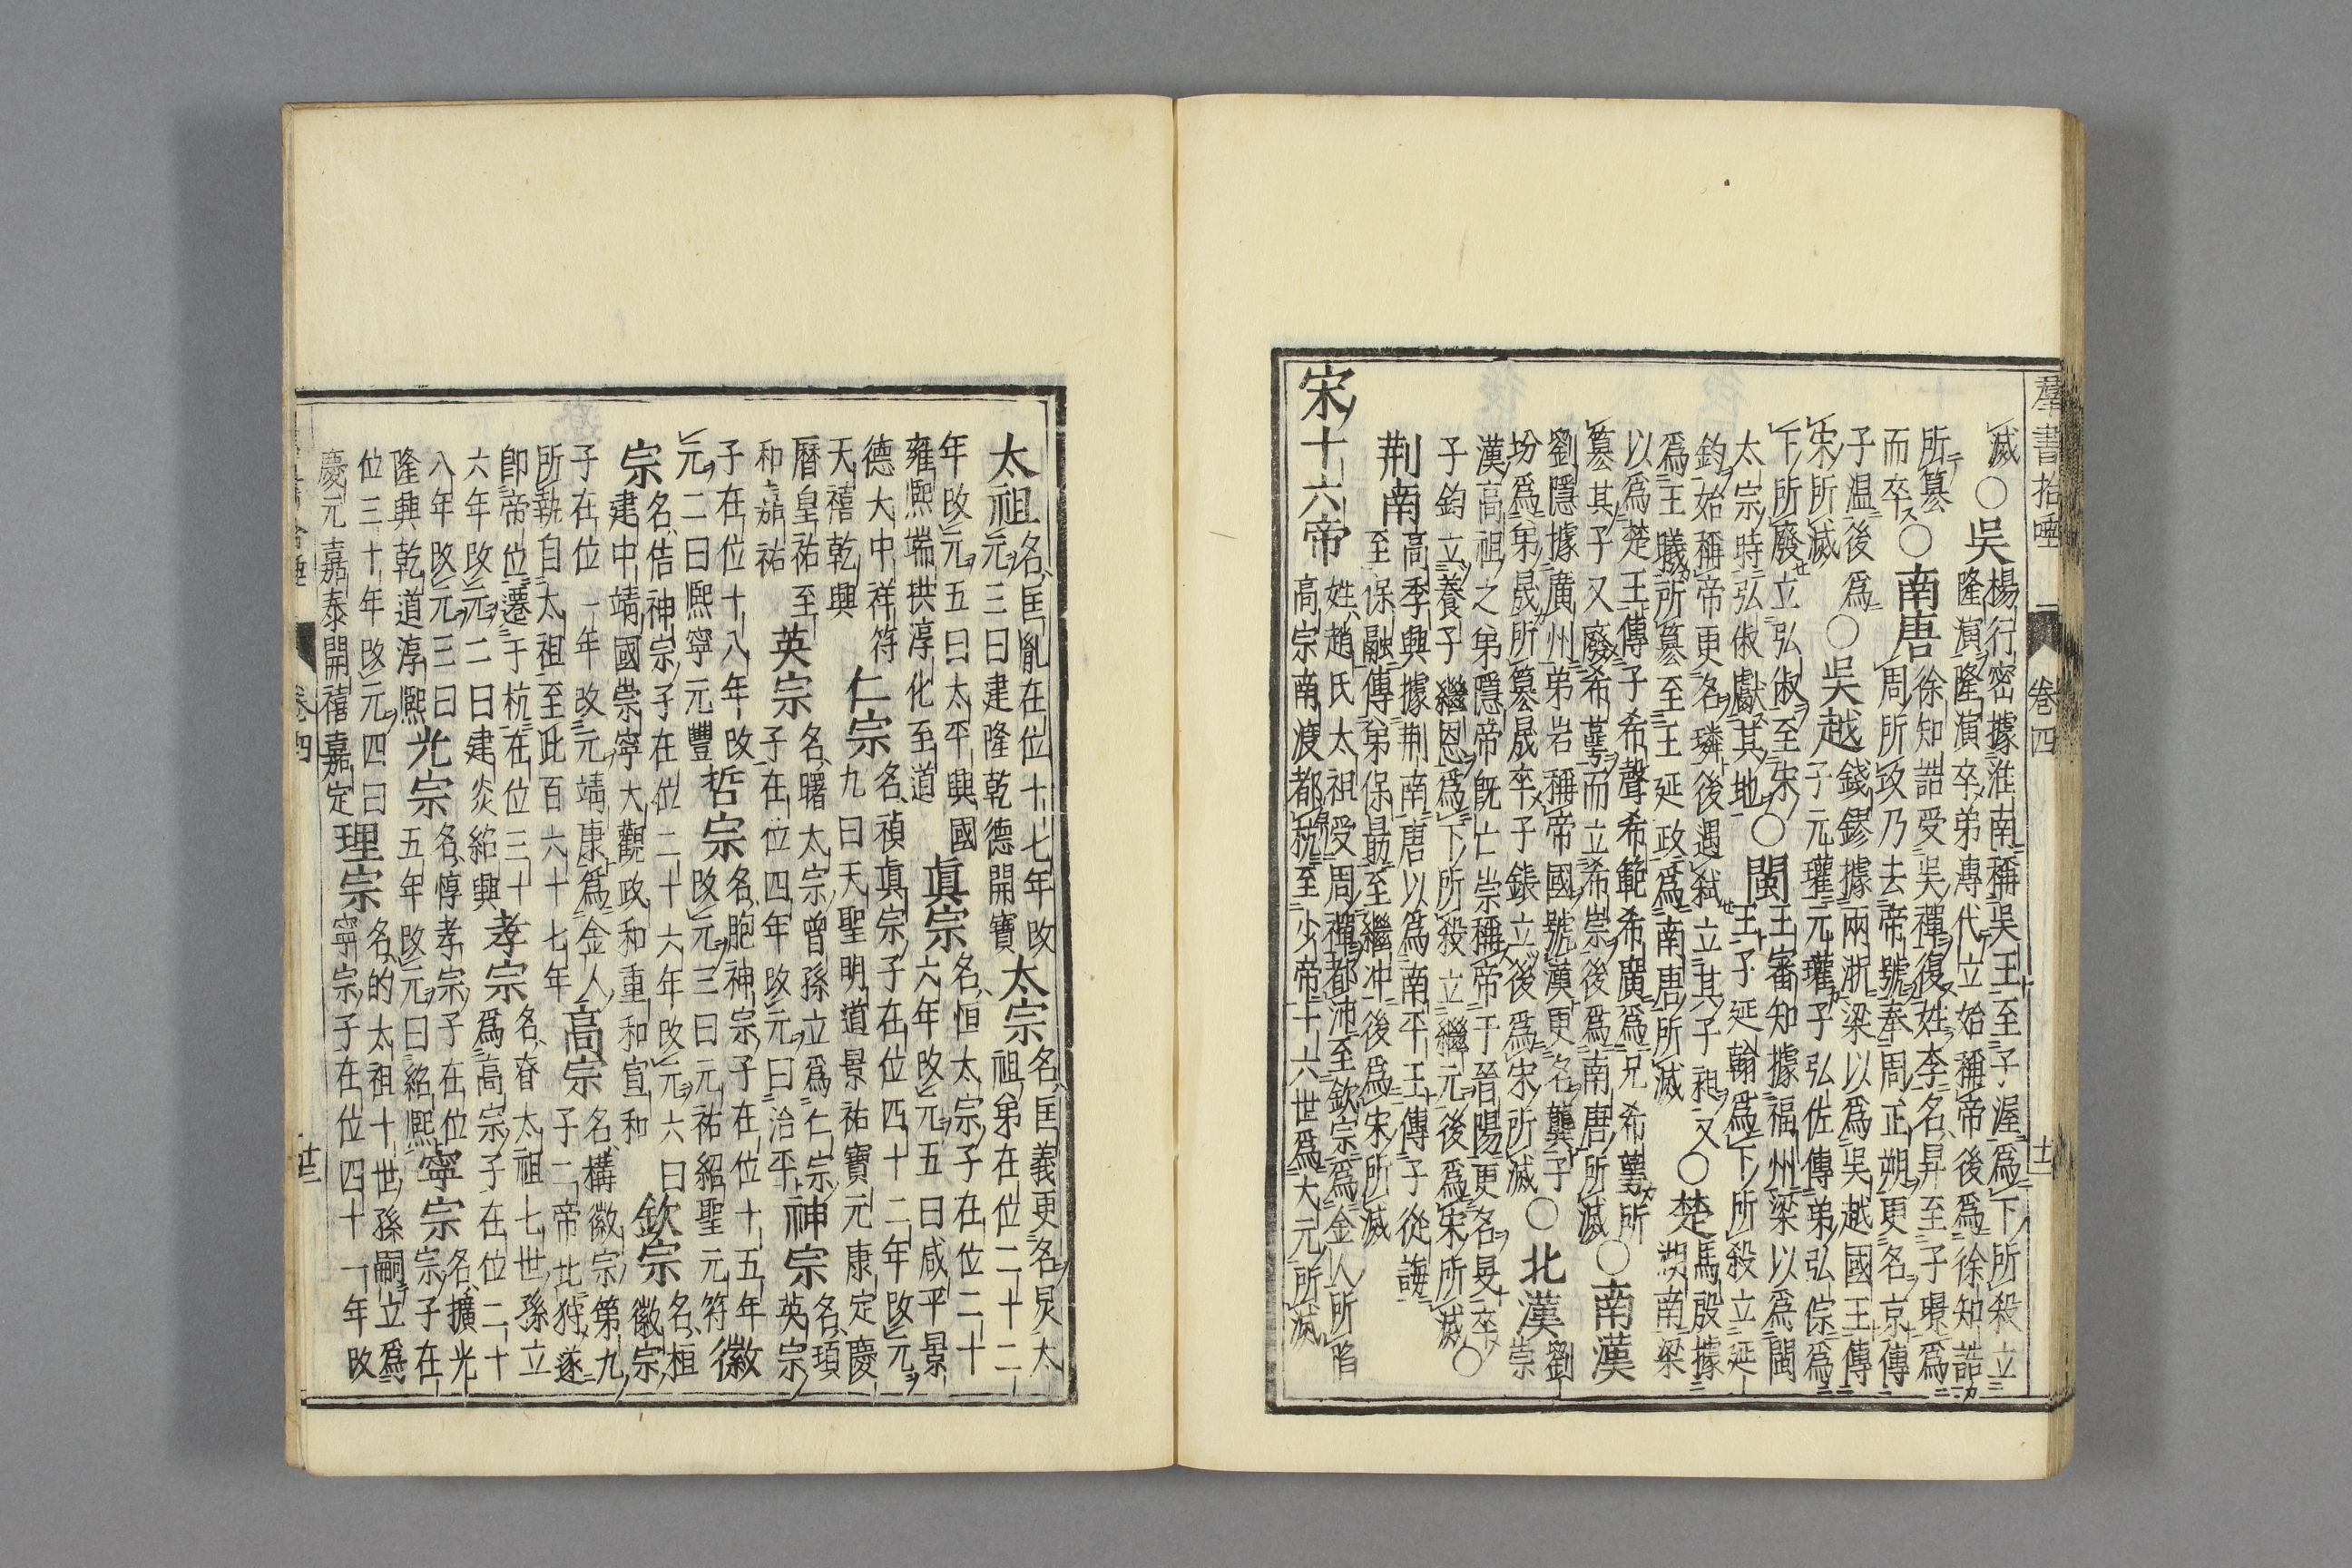 羣書拾唾 卷四
滅○吳楊行密據淮南稱吳王至子渥爲下所殺立隆演隆演卒弟溥代立始稱帝後爲徐知誥
所篡而卒○南唐徐知誥受吳禪復姓李名昇至子璟爲周所攻乃去帝號奉周正朔更名京傳
子溫後爲宋所滅○吳越錢鏐據兩浙梁以爲吳越國王傳子元瓘元瓘子弘佐傳弟弘倧爲
下所廢立弘俶至宋太宗時弘俶獻其地○閩王審知據福州梁以爲閩王子延翰爲下所殺立延
鈞始稱帝更名璘後遇弑立其子昶又爲王曦所篡至王延政爲南唐所滅○楚馬殷據湖南梁
以爲楚王傳子希聲希範希廣爲兄希萼所篡其子又廢希萼而立希崇後爲南唐所滅○南漢
劉隱據廣州弟岩稱帝國號漢更名龑子玢爲弟晟所篡晟卒子鋹立後爲宋所滅○北漢劉崇
漢高祖之弟隱帝旣亡崇稱帝于晉陽更名旻卒子鈞立養子繼恩爲下所殺立繼元後爲宋所滅○
荆南高季興據荆南唐以爲南平王傳子從誨至保融傳弟保勗至繼冲後爲宋所滅
宋十六帝姓趙氏太祖受周禪都汴至欽宗爲金人所陷高宗南渡都杭至少帝十六世爲大元所滅
太祖名匡胤在位十七年改元三曰建隆乾德開寶太宗名匡義更名炅太祖弟在位二十二
年改元五曰太平興國雍熙端拱淳化至道眞宗名恒太宗子在位二十六年改元五曰咸平景
德大中祥符天禧乾興仁宗名禎眞宗子在位四十二年改元九曰天聖明道景祐寶元康定慶
曆皇祐至和嘉祐英宗名曙太宗曾孫立爲仁宗子在位四年改元曰治平神宗名頊英宗
子在位十八年改元二曰熙寧元豐哲宗名胞神宗子在位十五年改元三曰元祐紹聖元符徽
宗名佶神宗子在位二十六年改元六曰建中靖國崇寧大觀政和重和宣和欽宗名桓徽宗
子在位一年改元靖康爲金人所執自太祖至此百六十七年高宗名構徽宗第九子二帝北狩遂
卽帝位遷于杭在位三十六年改元二曰建炎紹興孝宗名眘太祖七世孫立爲高宗子在位二十
八年改元三曰隆興乾道淳熙光宗名惇孝宗子在位五年改元曰紹熙寧宗名擴光宗子在
位三十年改元四曰慶元嘉泰開禧嘉定理宗名的太祖十世孫嗣立爲寧宗子在位四十一年改
卷四 廿三